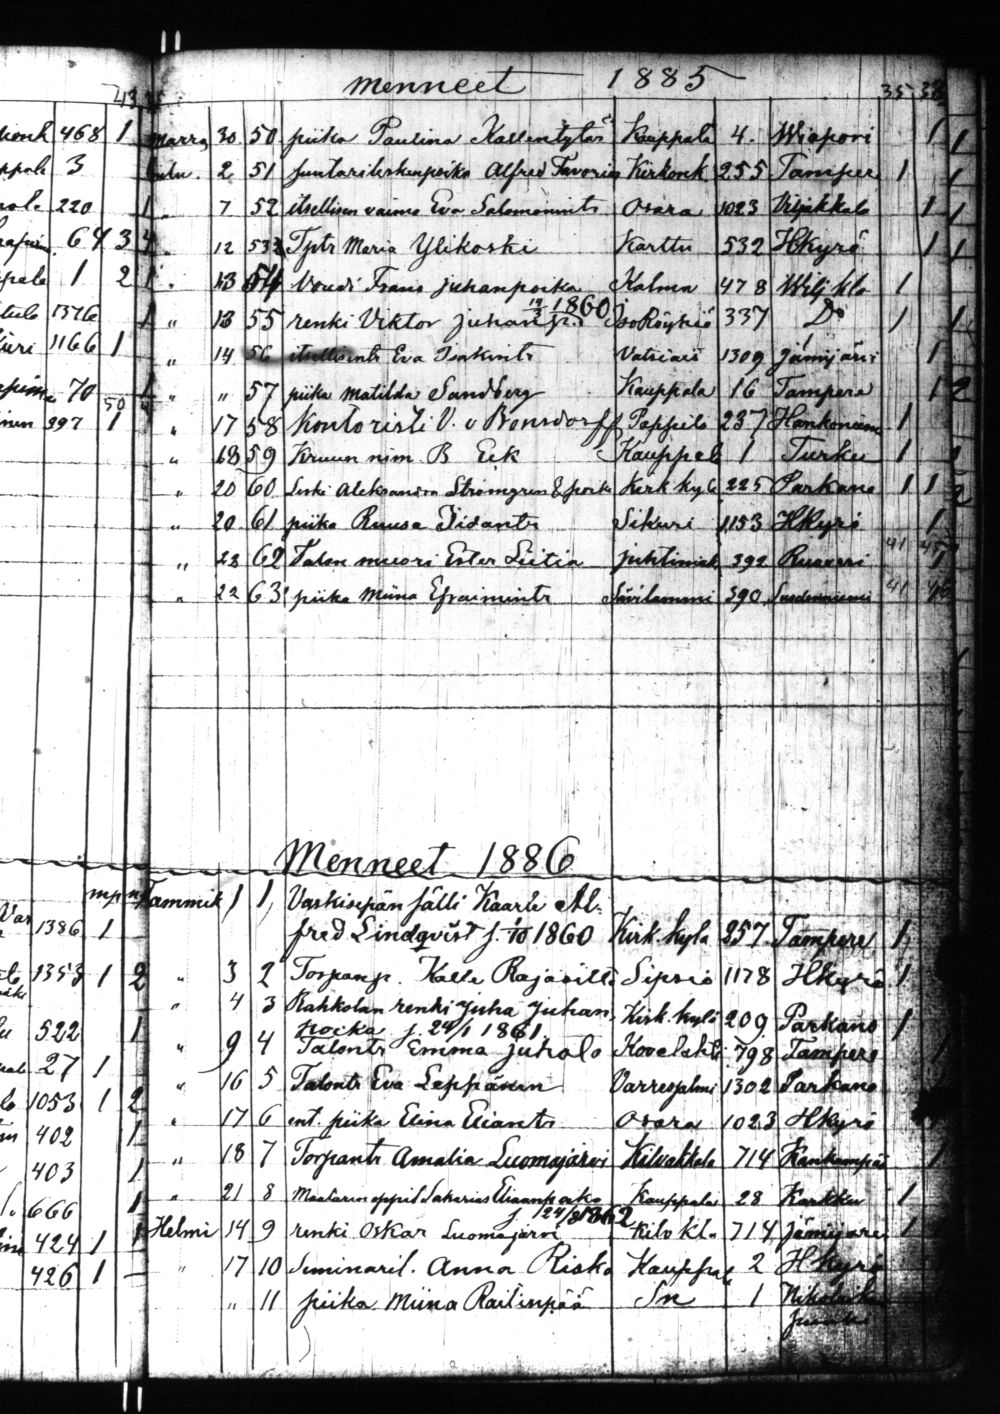 menneet 1885
43 35 35 38
468 1 Marra 30 50 piika Paulina Kallentytös Kauppala 4. Wiapori 1 1
3 Joulu. 2 51 Alfred Kirkonk 255 Tamper 1 1
220 1 " 7 52 itsellisen vaimo Eva Salomonints Osara 1023 Viljakkala 1 1
64 3 4 " 12 53 Tytr Maria Ylikoski Karttu 532 Hkyrö 1 1
1 2 1 " 13 54 Voudi Frans Juhanpoika Kalma 478 Wilj kla 1
1376 1 " 13 55 renki Viktor Juhanp. 1860 Iso Röyhiö 337 Do 1 1
1166 1 " 14 56 Eva Isakints Vatsiais 1309 Jämijärvi 1
70 1 " " 57 piika Matilda Sandberg Kauppala 16 Tampere 1 2
50
397 1 " 17 58 Kontoristi V. v Bonsdorff Pappila 237 Hankoniem 1
" 18 59 Kruun nim. B Eek Kauppal 1 Turku 1 1
" 20 60 Leski Aleksandra Strömgren & poika Kirk kylä 225 Parkano 1 1 2
" 20 61 piika Ruusa Iidants Sikuri 1153 Hkyrö 1
41 45
" 22 62 Talon muori Ester Liitia Juhtimäk 392 Ruovesi 1
" 22 63 piika Miina Efraimints Sävilammi 390 Suodenniemi 41 46
Menneet 1886
mp np Tammik 1 1, Vaskisepän sälli Kaarle Al-
1386 1 fred Lindqvist s. 1/10 1860 Kirk. kylä 257 Tampere 1
1353 1 2 " 3 2 Torpanp. Kalle Rajasilta Sipsiö 1178 Hkyrö 1
" 4 3 Rahkolan renki Juha Juhan
522 1 poika s. 24/1 1861 Kirk. kylä 209 Parkano 1
27 1 " 9 4 Talontr Emma Juhola Kovelahti 798 Tampere 1
1053 1 2 " 16 5 Talontr Eva Leppänen Varvesjalmi 1302 Parkano
402 1 " 17 6 ent. piika Elina Eliants Osara 1023 Hkyrö
403 1 " 18 7 Torpantr Amalia Luomajärvi Kilvakkala 714 Kankaanpää 1
666 1 " 21 8 Maalarin oppil Sakarias Eliaanpoika Kauppala 28 Karkku 1
s. 24/8 1862
424 1 1 Helmi 14 9 renki Oskar Luomajärvi Kilv kl. 714 Jämijärvi 1
426 1 " 17 10 Seminaril. Anna Risko Kauppal 2 Hkyrö
" 11 piika Miina Railinpää Sn 1 Nikolain